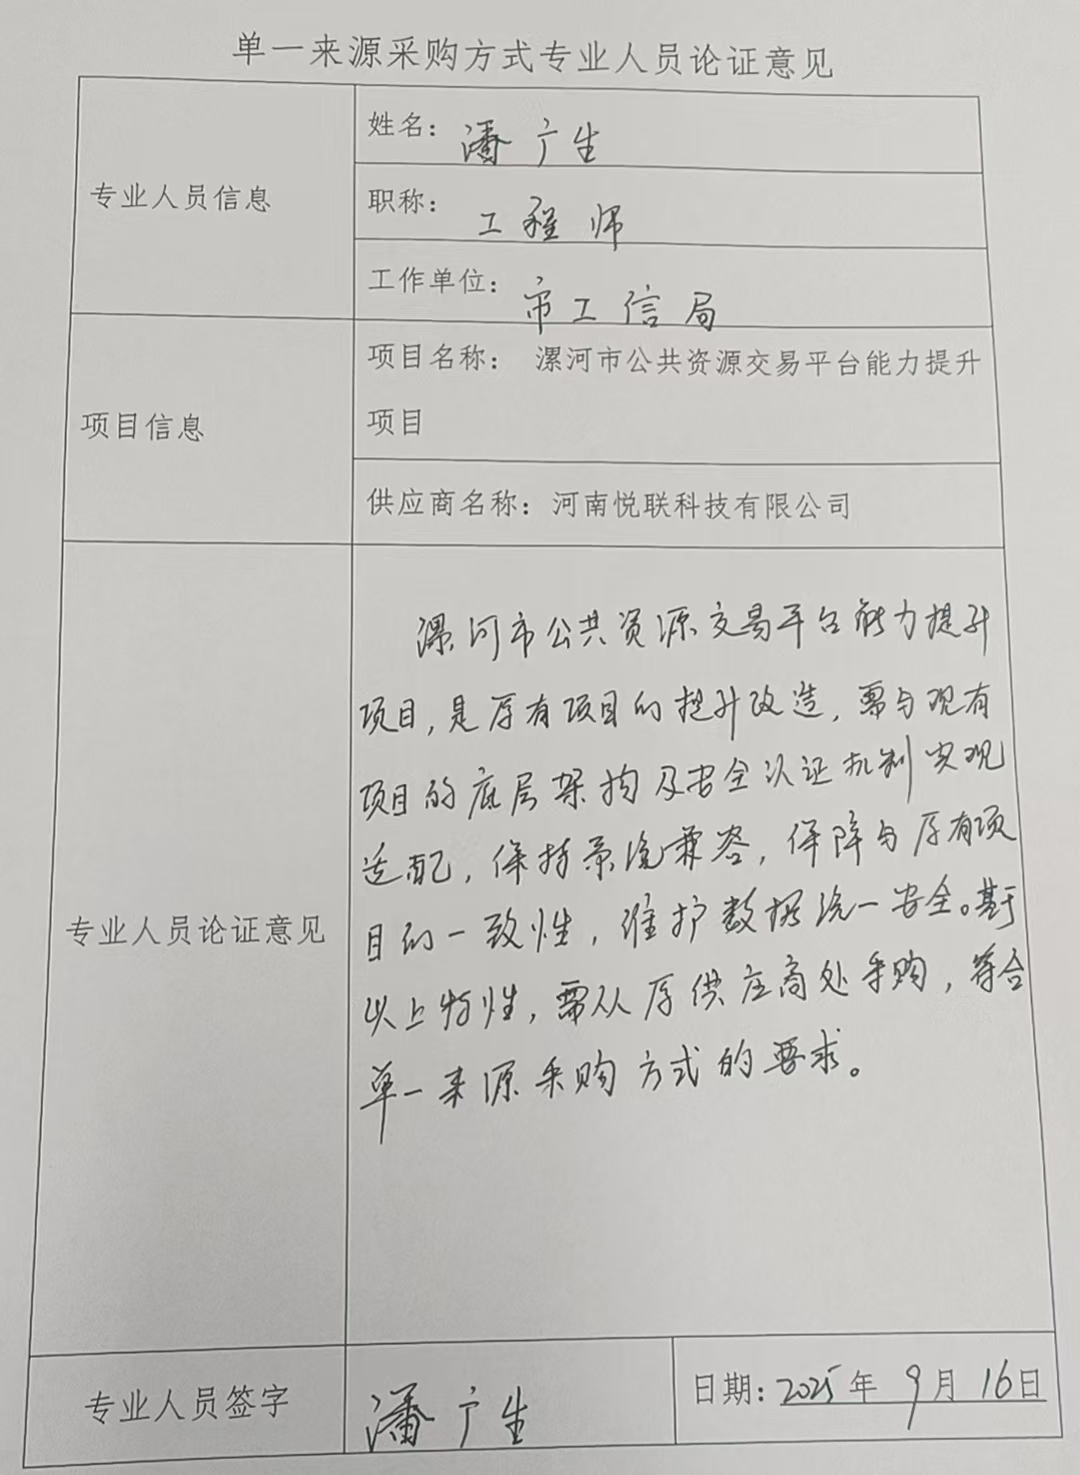 单一来源采购方式专业人员论证意见
专业人员信息
姓名：潘广生
职称：工程师
工作单位：市工信局
项目信息
项目名称：漯河市公共资源交易平台能力提升
项目
供应商名称：河南悦联科技有限公司
专业人员论证意见
漯河市公共资源交易平台能力提升
项目，是原有项目的提升改造，需与现有
项目的底层架构及安全认证机制实现
适配，保持系统兼容，保障与原有项
目的一致性，维护数据统一安全。基于
以上特性，需从原供应商处采购，符合
单一来源采购方式的要求。
专业人员签字
潘广生
日期：2025年9月16日